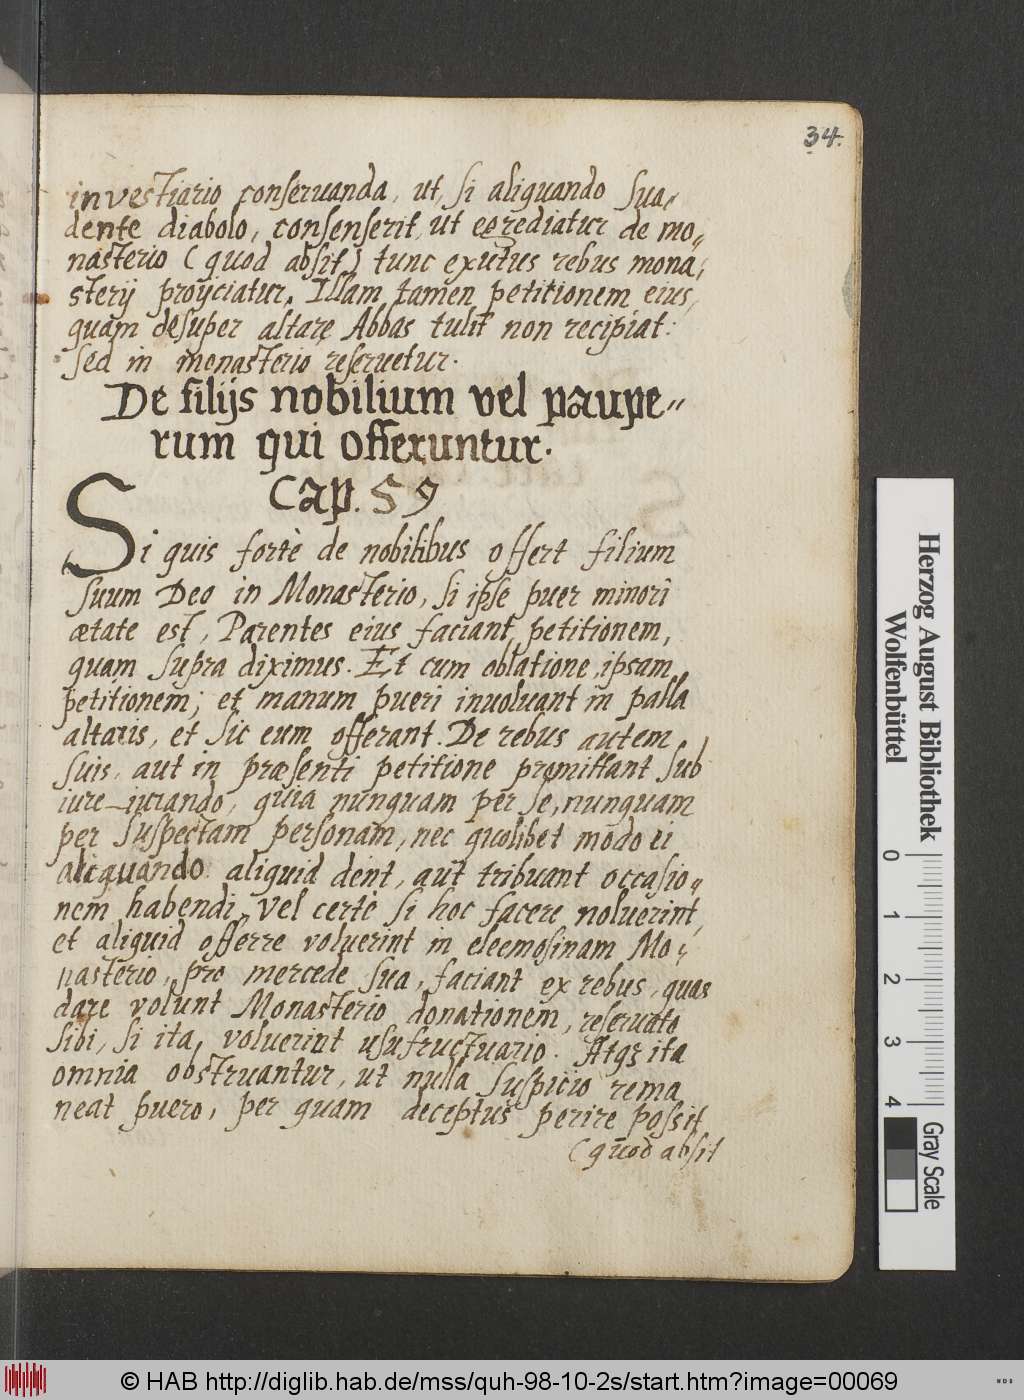 34.
investiario conseruanda, ut, si aliquando sua„
dente diabolo, consenserit, ut egrediatur de mo„
nasterio (quod absit) tunc exutus rebus mona„
sterij proijciatur. Illam tamen petitionem eius,
quam desuper altare Abbas tulit non recipiat:
sed in monasterio reseruetur.
De filijs nobilium vel paupe„
rum qui offeruntur.
Cap. 59
Si quis fortè de nobilibus offert filium
suum Deo in Monasterio, si ipse puer minori
ætate est, Parentes eius faciant petitionem,
quam supra diximus. Et cum oblatione, ipsam
petitionem; et manum pueri inuoluant in palla
altaris, et sic eum offerant. De rebus autem
suis, aut in præsenti petitione promittant sub
iure-iurando, quia nunquam per se, nunquam
per suspectam personam, nec quolibet modo ei
aliquando aliquid dent, aut tribuant occasio„
nem habendi, vel certè si hoc facere noluerint,
et aliquid offerre voluerint in eleemosinam Mo„
nasterio, pro mercede sua, faciant ex rebus, quas
dare volunt Monasterio donationem, reseruato
sibi, si ita, voluerint usufructuario. Atqꝫ ita
omnia obstruantur, ut nulla suspicio rema„
neat puero, per quam deceptus perire possit
(quod absit
Herzog August Bibliothek
Wolfenbüttel
0 1 2 3 4
Gray Scale
© HAB http://diglib.hab.de/mss/quh-98-10-2s/start.htm?image=00069